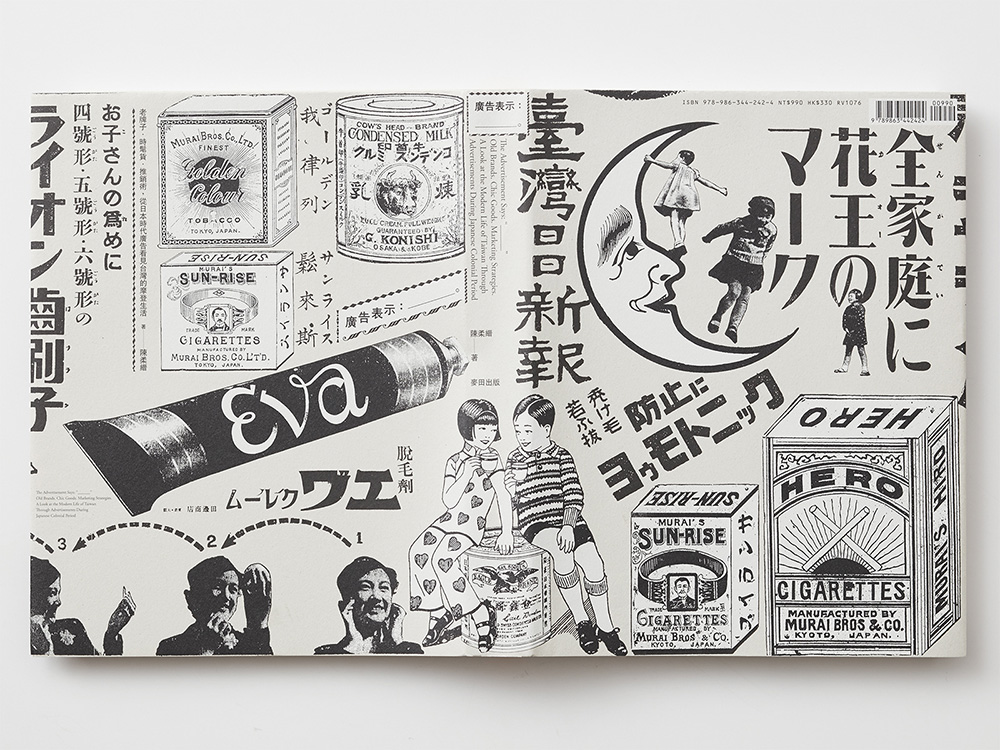 ライオン歯刷子
四號形・五號形・六號形の
お子さんの爲めに
老牌子、時髦貨、推銷術,從日本時代廣告看見台灣的摩登生活 著 陳柔縉
MURAI BROS. Co. LTD.
FINEST
Golden
Colour
TOBACCO
TOKYO, JAPAN.
ゴールデン
我、律列
サンライス
鬆來斯
COW'S HEAD-BRAND
CONDENSED MILK
クルミ スンデンコ
牛首印
煉乳
GUARANTEED BY
G. KONISHI
OSAKA & KOBE
SUN-RISE
MURAI'S
SUN-RISE
TRADE MARK
CIGARETTES
MANUFACTURED BY
MURAI BROS. Co. LT'D.
TOKYO, JAPAN.
サンライス
廣告表示:
Eva
脱毛劑
エヴァ
ムーレク
The Advertisement Says: "______"
Old Brands, Chic Goods, Marketing Strategies.
A Look at the Modern Life of Taiwan
Through Advertisements During
Japanese Colonial Period
3
2
1
廣告表示:
The Advertisement Says: "______"
Old Brands, Chic Goods, Marketing Strategies.
A Look at the Modern Life of Taiwan Through
Advertisements During Japanese Colonial Period
陳柔縉
著
麥田出版
臺灣日日新報
ISBN 978-986-344-242-4 NT$990 HK$330 RV1076
00990
9 789863 442424
全家庭に
ぜんかてい
花王の
マーク
禿げ毛
若ぶ抜
防止に
ヨウモトニック
SUN-RISE
MURAI'S
SUN-RISE
TRADE MARK
CIGARETTES
MANUFACTURED BY
MURAI BROS & Co.
KYOTO, JAPAN.
サンライス
HERO
HERO
CIGARETTES
MANUFACTURED BY
MURAI BROS & CO.
KYOTO, JAPAN.
MURAI'S HERO